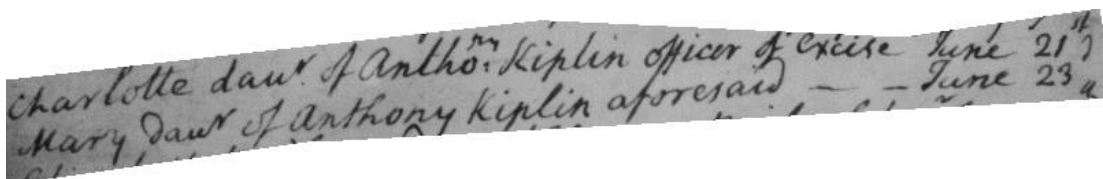 Charlotte dauʳ. of Anthoⁿʸ: Kiplin officer of Excise June 21ˢᵗ
Mary Dauʳ of Anthony Kiplin aforesaid — — June 23